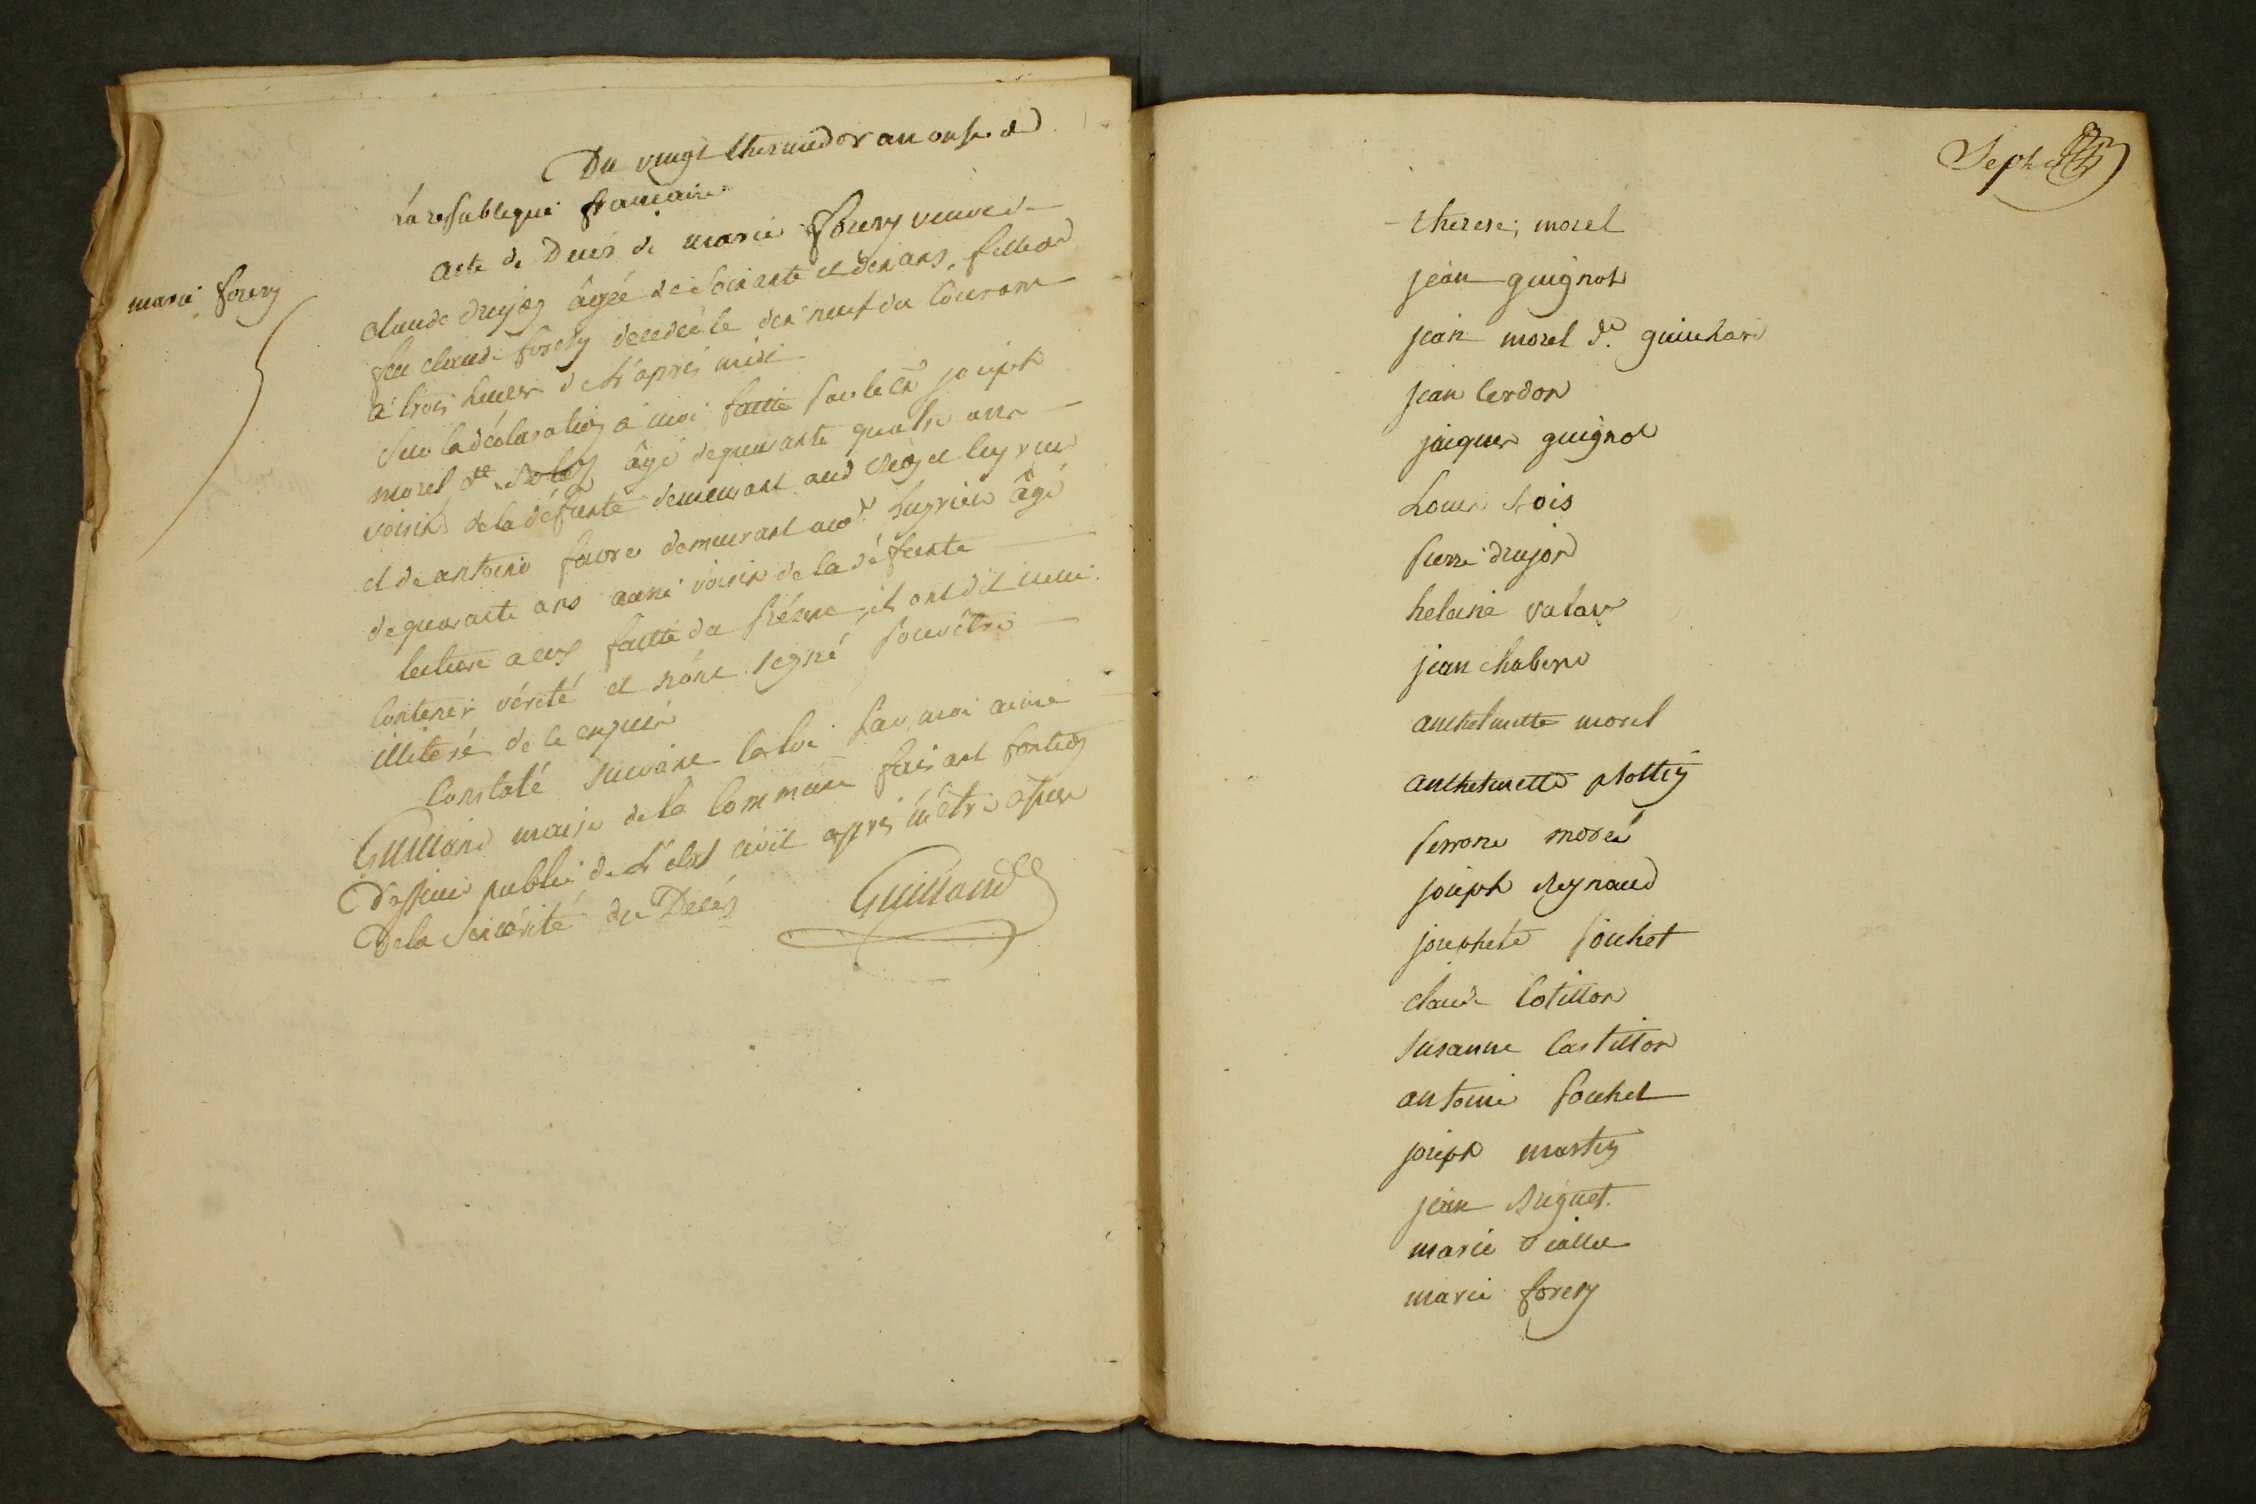 Du vingt thermidor an onse de
La republique francaise
marie forery
acte de Decès de marie forery veuve de
claude drujon âgée de soixante et dix ans, fille de
feu claude forery decedée le dix neuf du courant
à trois heures de L'aprés midi
sur la déclaration à moi faitte par le cn joseph
morel dit âgé de quarante quatre ans
voisin de la défunte demeurant aud
et de antoine favre demeurant aud. Luyrieu âgé
de quarante ans aussi voisin de la défunte
lecture a eux faitte du présent, ils ont dit icelui
contenir vérité et n'ont signé pour être
illiteré de ce enquis
Constaté suivant la loi par moi aimé
Guilland maire de la commune faisant fontion
d'officier public de L'etat civil après m'être assuré
De la sincérité du Décés
Guilland
Sept
therese morel
jean guignot
jean morel d. guinchard
jean Cerdon
jacques guignot
Louis Bois
pierre drujon
helaine
jean chabert
anthelmette morel
anthelmette plottin
perrone morel
joseph Reynaud
josephete pochet
claude Cotillon
susanne Castillon
antoine pochet
joseph martin
jean Huguet
marie viallet
marie forery